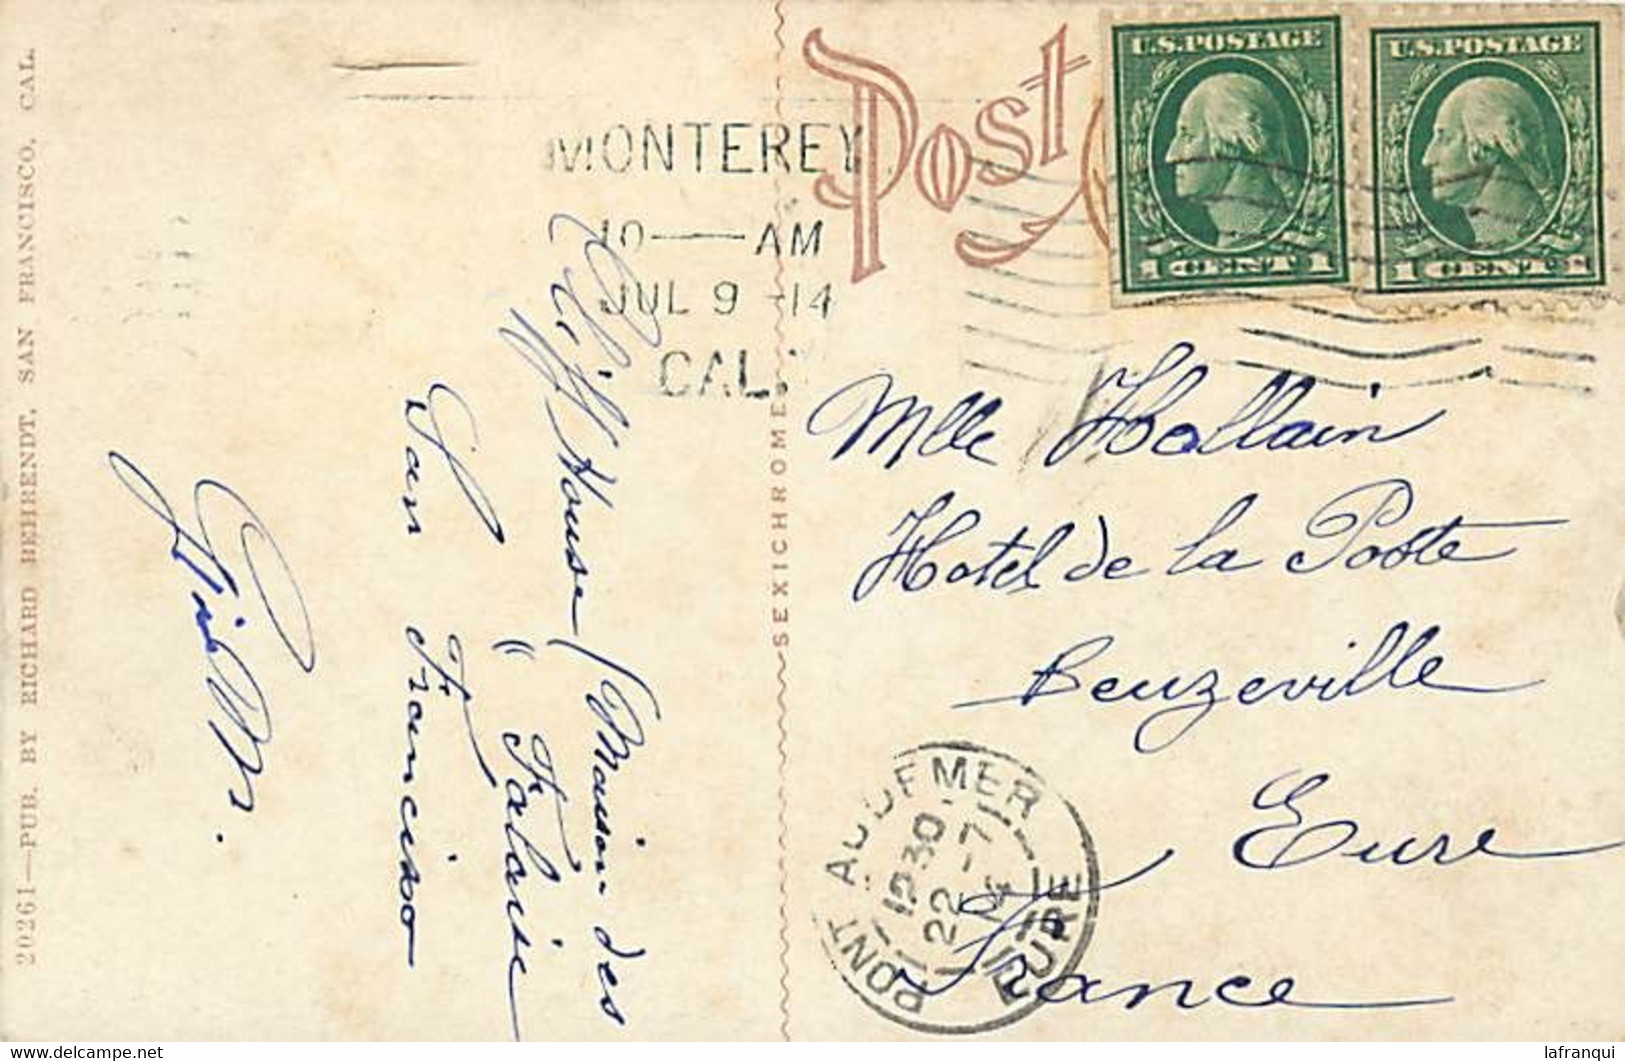 20261—PUB. BY RICHARD BEHRENDT, SAN FRANCISCO, CAL.
MONTEREY
10 — AM
JUL 9 -14
CAL.
Post
U.S.POSTAGE
1 CENT 1
U.S.POSTAGE
1 CENT 1
Cliff House (Maison des
" Falaise
San Francisco
SEXICHROME
Mlle Hollain
Hotel de la Poste
Beuzeville
Eure
France
PONT AUDEMER
1530
22 -7
14
EURE
lafranqui